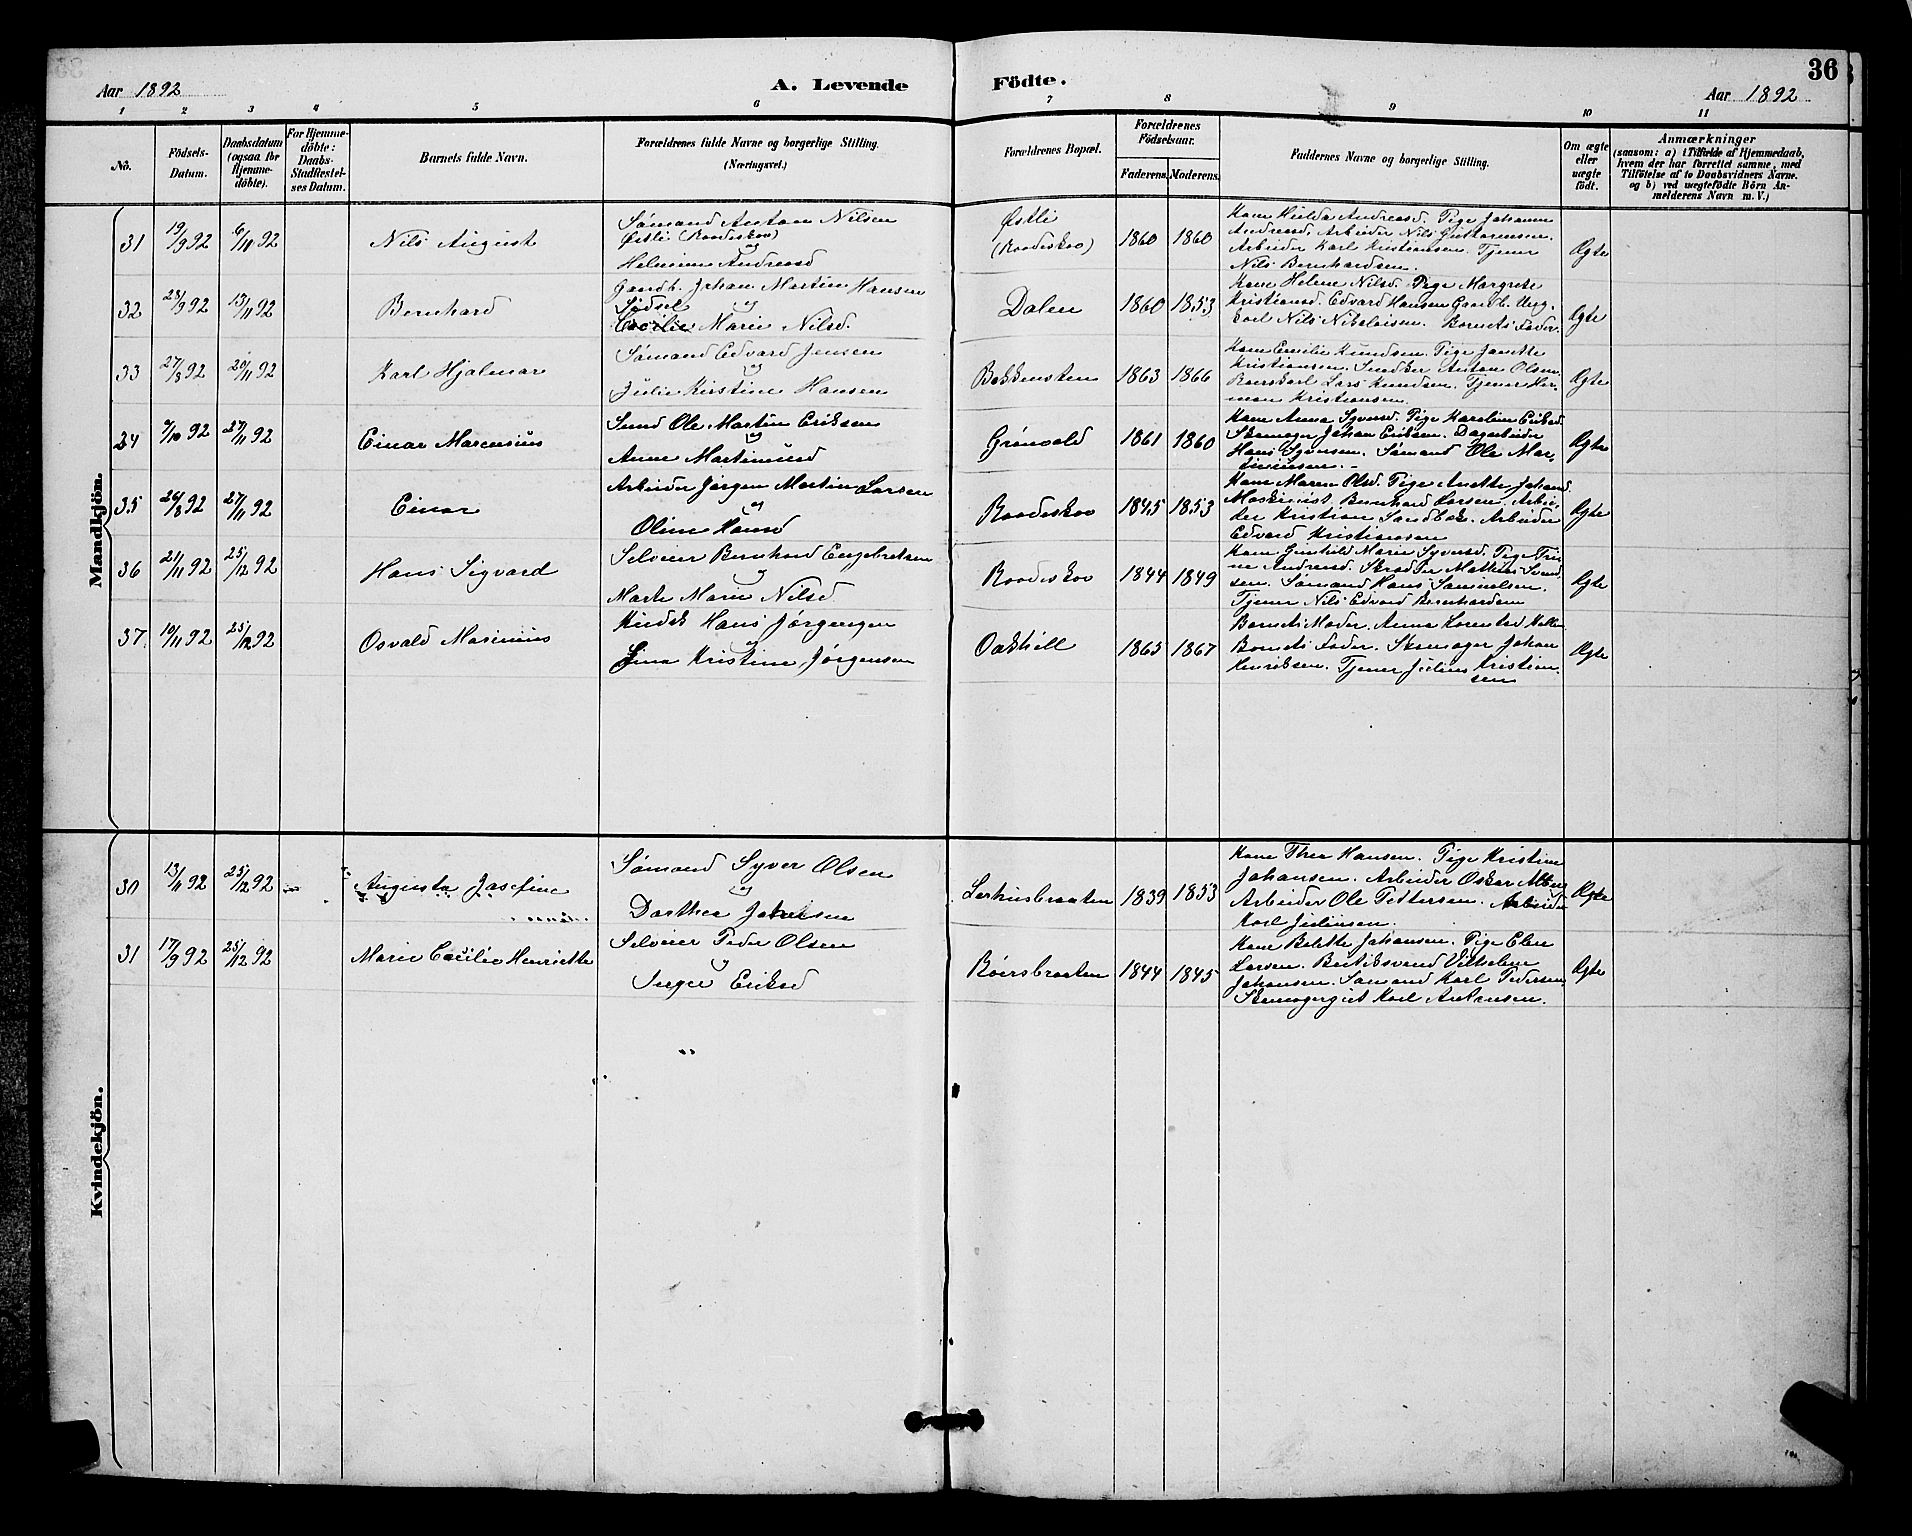 36
Aar 1892 A. Levende Födte. Aar 1892
1 2 3 4 5 6 7 8 9 10 11
No.
Födsels-Datum.
Daabsdatum (ogsaa for Hjemme-döbte).
For Hjemme-döbte: Daabs-Stadfæstelses Datum.
Barnets fulde Navn.
Forældrenes fulde Navne og borgerlige Stilling. (Næringsvei.)
Forældrenes Bopæl.
Forældrenes Födselsaar.
Faderens. Moderens.
Faddernes Navne og borgerlige Stilling.
Om ægte eller uægte födt.
Anmærkninger
(saasom: a) i Tilfælde af Hjemmedaab,
hvem der har forrettet samme, med
Tilföielse af to Daabsvidners Navne.
og b) ved uægtefödte Börn An-
melderens Navn m. V.)
Mandkjön.
31 19/9 92 6/11 92 Nils August
Sømand Anton Nilsen
Østli (Roodeskov)
og
Helmine Andreasd
Østli
(Roodeskov)
1860 1860
Kone Hulda Andreasd. Pige Johanne
Andreasd. Arbeider Nils Guttormsen.
Arbeider Karl Kristiansen. Tjener
Nils Bernhardsen.
Ægte
32 28/9 92 13/11 92 Bernhard
Gaardb. Johan Martin Hansen
og
Cecilie Marie Nilsd.
Dalen 1860 1853
Kone Helene Nilsd. Pige Margrete
Kristiansd. Edvard Hansen Gaardb. Ung-
karl Nils Nikolaisen. Barnets Fader.
Ægte
33 27/8 92 20/11 92 Karl Hjalmar
Sømand Edvard Jensen
og
Julie Kirstine Hansen
Bakkensten 1863 1866
Kone Emilie Knudsen. Pige Janette
Kristiansen. Snedker Anton Olsen.
Lars Knudsen. Tjener Her-
man Kristiansen.
Ægte
34 9/10 92 27/11 92 Einar Marensius
Smed Ole Martin Eriksen
og
Anne Martinusd
Grünvold 1861 1860
Kone Anna Syversd. Pige Karoline Eriksd.
Skomager Johan Eriksen. Dagarbeider
Hans Syversen. Sømand Ole Mar-
tiniusen.
Ægte
35 26/8 92 27/11 92 Einar
Arbeider Jørgen Martin Larsen
og
Oline Hansd
Roodeskov 1845 1853
Kone Maren Olsd. Pige Anette Johansd.
Maskinist Bernhard Larsen. Arbei-
der Kristian Sandbek. Arbeider
Edvard Kristiansen
Ægte
36 21/11 92 25/12 92 Hans Sigvard
Selveier Bernhard Engebretsen
og
Marte Marie Nilsd.
Roodeskov 1844 1849
Kone Gunhild Marie Syversd. Pige Tri-
ne Andreasd. Skrædder Mathias Svend-
sen. Sømand Hans Samuelsen.
Tjener Nils Edvard Bernhardsen
Ægte
37 10/11 92 25/12 92 Osvald Marinius
Hans Jørgensen
og
Lina Kristine Jørgensen
Oakhill 1865 1867
Barnets Moder. Anna
Barnets Fader. Skomager Johan
Henriksen. Tjener Julius Kristian-
sen
Ægte
Kvindekjön.
30 13/11 92 25/12 92 Augusta Josefine
Sømand Syver Olsen
og
Dorthea Johansen
Lerhusbraaten 1839 1853
Kone Thea Hansen. Pige Kristine
Johansen. Arbeider Oskar
Arbeider Ole Pettersen. Arbeider
Karl Juliusen.
Ægte
31 17/9 92 25/12 92 Marie Cecilie Henriette
Selveier Peder Olsen
og
Inger Eriksd
Røiersbraaten 1844 1845
Kone Belette Johansen. Pige Elen
Larsen. Butiksvend Vilhelm
Johansen. Sømand Karl Pedersen
Karl Antonsen.
Ægte